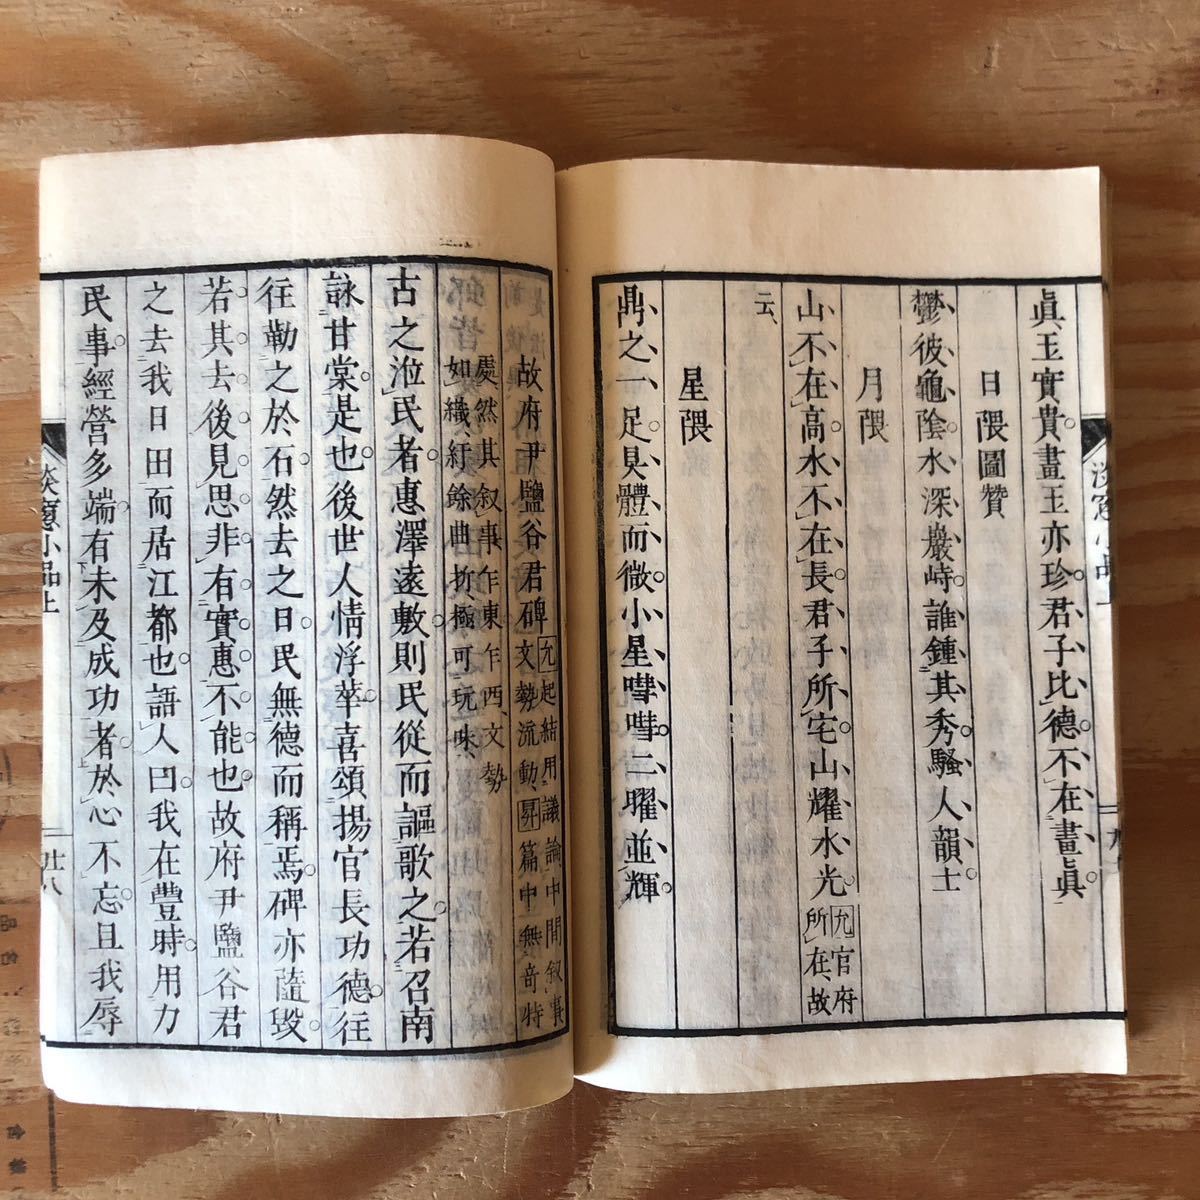 眞玉實貴畫玉亦珍君子比德不在畫眞
日隈圖贊
鬱彼龜陰水深巖峙誰鍾其秀騷人韻士
月隈
山不在高水不在長君子所宅山耀水光允官府
所在故
云
星隈
鼎之一足具體而微小星嘒嘒三曜並輝
故府尹鹽谷君碑允起結用議論中間叙事
文勢流動昇篇中無奇特
處然其叙事乍東乍西文勢
如織紆餘曲折極可玩味
古之涖民者惠澤遠敷則民從而謳歌之若召南
詠甘棠是也後世人情浮華喜頌揚官長功德往
往勒之於石然去之日民無德而稱焉碑亦隨毀
若其去後見思非有實惠不能也故府尹鹽谷君
之去我日田而居江都也語人曰我在豐時用力
民事經營多端有未及成功者於心不忘且我辱
淡窗小品上
廿八